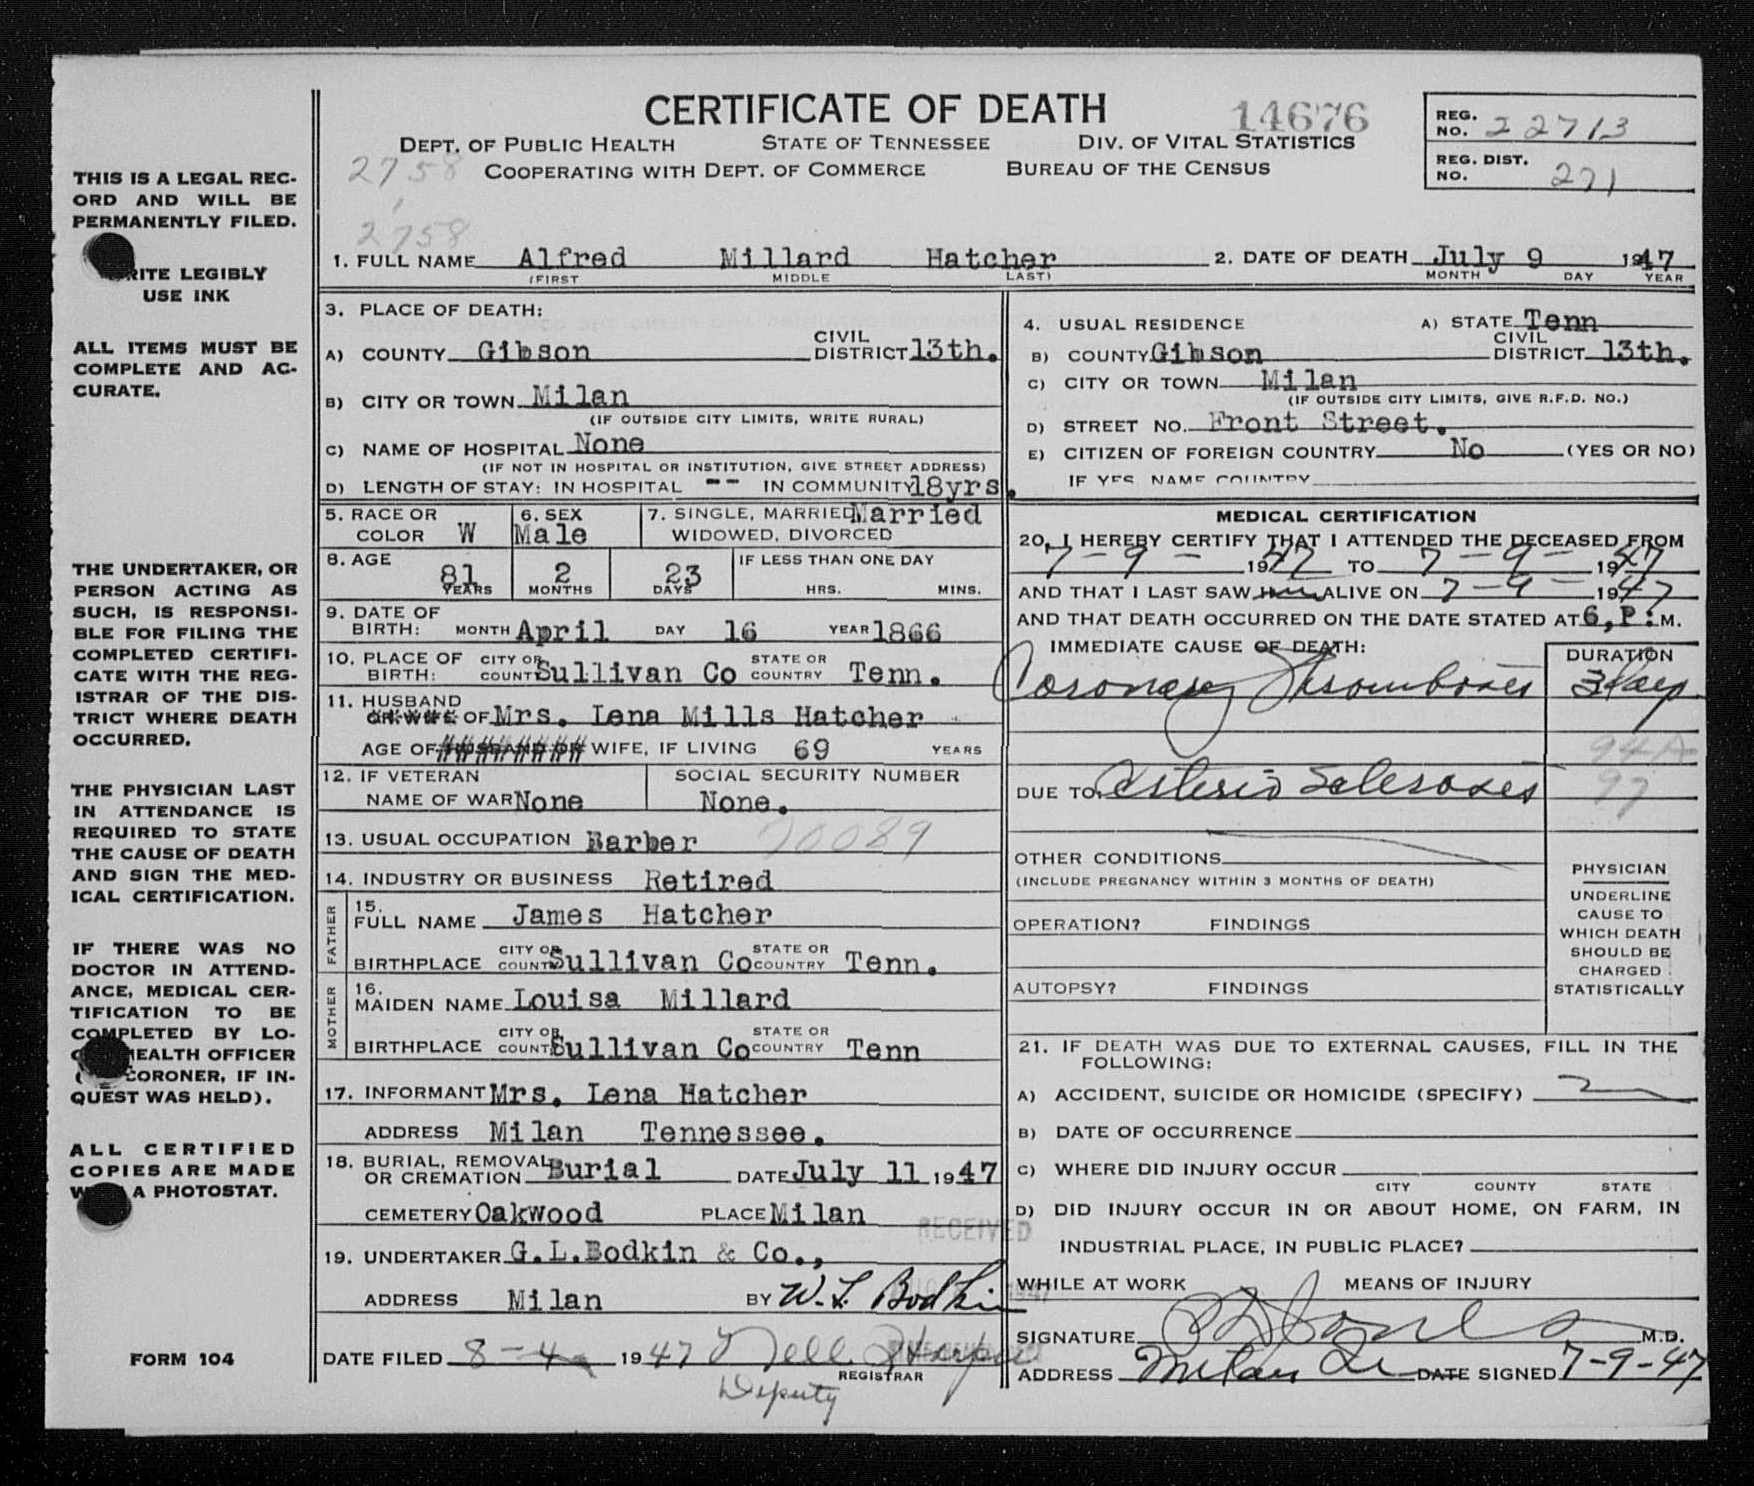 CERTIFICATE OF DEATH
14676
DEPT. OF PUBLIC HEALTH STATE OF TENNESSEE DIV. OF VITAL STATISTICS
COOPERATING WITH DEPT. OF COMMERCE BUREAU OF THE CENSUS
REG. NO. 22713
REG. DIST. NO. 271
2758
2758
THIS IS A LEGAL REC-
ORD AND WILL BE
PERMANENTLY FILED.
WRITE LEGIBLY
USE INK
ALL ITEMS MUST BE
COMPLETE AND AC-
CURATE.
THE UNDERTAKER, OR
PERSON ACTING AS
SUCH, IS RESPONSI-
BLE FOR FILING THE
COMPLETED CERTIFI-
CATE WITH THE REG-
ISTRAR OF THE DIS-
TRICT WHERE DEATH
OCCURRED.
THE PHYSICIAN LAST
IN ATTENDANCE IS
REQUIRED TO STATE
THE CAUSE OF DEATH
AND SIGN THE MED-
ICAL CERTIFICATION.
IF THERE WAS NO
DOCTOR IN ATTEND-
ANCE, MEDICAL CER-
TIFICATION TO BE
COMPLETED BY LO-
HEALTH OFFICER
CORONER, IF IN-
QUEST WAS HELD).
ALL CERTIFIED
COPIES ARE MADE
A PHOTOSTAT.
FORM 104
1. FULL NAME Alfred Millard Hatcher
(FIRST) MIDDLE LAST)
2. DATE OF DEATH July 9 1947
MONTH DAY YEAR
3. PLACE OF DEATH:
A) COUNTY Gibson CIVIL DISTRICT 13th.
B) CITY OR TOWN Milan
(IF OUTSIDE CITY LIMITS, WRITE RURAL)
C) NAME OF HOSPITAL None
(IF NOT IN HOSPITAL OR INSTITUTION, GIVE STREET ADDRESS)
D) LENGTH OF STAY: IN HOSPITAL -- IN COMMUNITY 18yrs.
5. RACE OR COLOR W 6. SEX Male 7. SINGLE, MARRIED Married
WIDOWED, DIVORCED
8. AGE 81 YEARS 2 MONTHS 23 DAYS IF LESS THAN ONE DAY HRS. MINS.
9. DATE OF BIRTH: MONTH April DAY 16 YEAR 1866
10. PLACE OF BIRTH: CITY OR COUNTY Sullivan Co STATE OR COUNTRY Tenn.
11. HUSBAND OR WIFE OF Mrs. Lena Mills Hatcher
AGE OF HUSBAND OR WIFE, IF LIVING 69 YEARS
12. IF VETERAN NAME OF WAR None SOCIAL SECURITY NUMBER None.
13. USUAL OCCUPATION Barber 70089
14. INDUSTRY OR BUSINESS Retired
FATHER
15. FULL NAME James Hatcher
BIRTHPLACE CITY OR COUNTY Sullivan Co STATE OR COUNTRY Tenn.
MOTHER
16. MAIDEN NAME Louisa Millard
BIRTHPLACE CITY OR COUNTY Sullivan Co STATE OR COUNTRY Tenn
17. INFORMANT Mrs. Lena Hatcher
ADDRESS Milan Tennessee.
18. BURIAL, REMOVAL OR CREMATION Burial DATE July 11 1947
CEMETERY Oakwood PLACE Milan
RECEIVED
19. UNDERTAKER G.L.Bodkin & Co.,
ADDRESS Milan BY W. L. Bodkin
DATE FILED 8-4 1947 Nell Harper
REGISTRAR
Deputy
4. USUAL RESIDENCE A) STATE Tenn
B) COUNTY Gibson CIVIL DISTRICT 13th.
C) CITY OR TOWN Milan
(IF OUTSIDE CITY LIMITS, GIVE R.F.D. NO.)
D) STREET NO. Front Street.
E) CITIZEN OF FOREIGN COUNTRY No (YES OR NO)
IF YES, NAME COUNTRY
MEDICAL CERTIFICATION
20. I HEREBY CERTIFY THAT I ATTENDED THE DECEASED FROM
7-9- 1947 TO 7-9- 1947
AND THAT I LAST SAW him ALIVE ON 7-9- 1947
AND THAT DEATH OCCURRED ON THE DATE STATED AT 6, P: M.
IMMEDIATE CAUSE OF DEATH: DURATION
Coronary Thrombosis
94A
97
DUE TO
OTHER CONDITIONS
(INCLUDE PREGNANCY WITHIN 3 MONTHS OF DEATH)
OPERATION? FINDINGS
AUTOPSY? FINDINGS
PHYSICIAN
UNDERLINE
CAUSE TO
WHICH DEATH
SHOULD BE
CHARGED
STATISTICALLY
21. IF DEATH WAS DUE TO EXTERNAL CAUSES, FILL IN THE
FOLLOWING:
A) ACCIDENT, SUICIDE OR HOMICIDE (SPECIFY)
B) DATE OF OCCURRENCE
C) WHERE DID INJURY OCCUR
CITY COUNTY STATE
D) DID INJURY OCCUR IN OR ABOUT HOME, ON FARM, IN
INDUSTRIAL PLACE, IN PUBLIC PLACE?
WHILE AT WORK MEANS OF INJURY
SIGNATURE M.D.
ADDRESS Milan DATE SIGNED 7-9-47